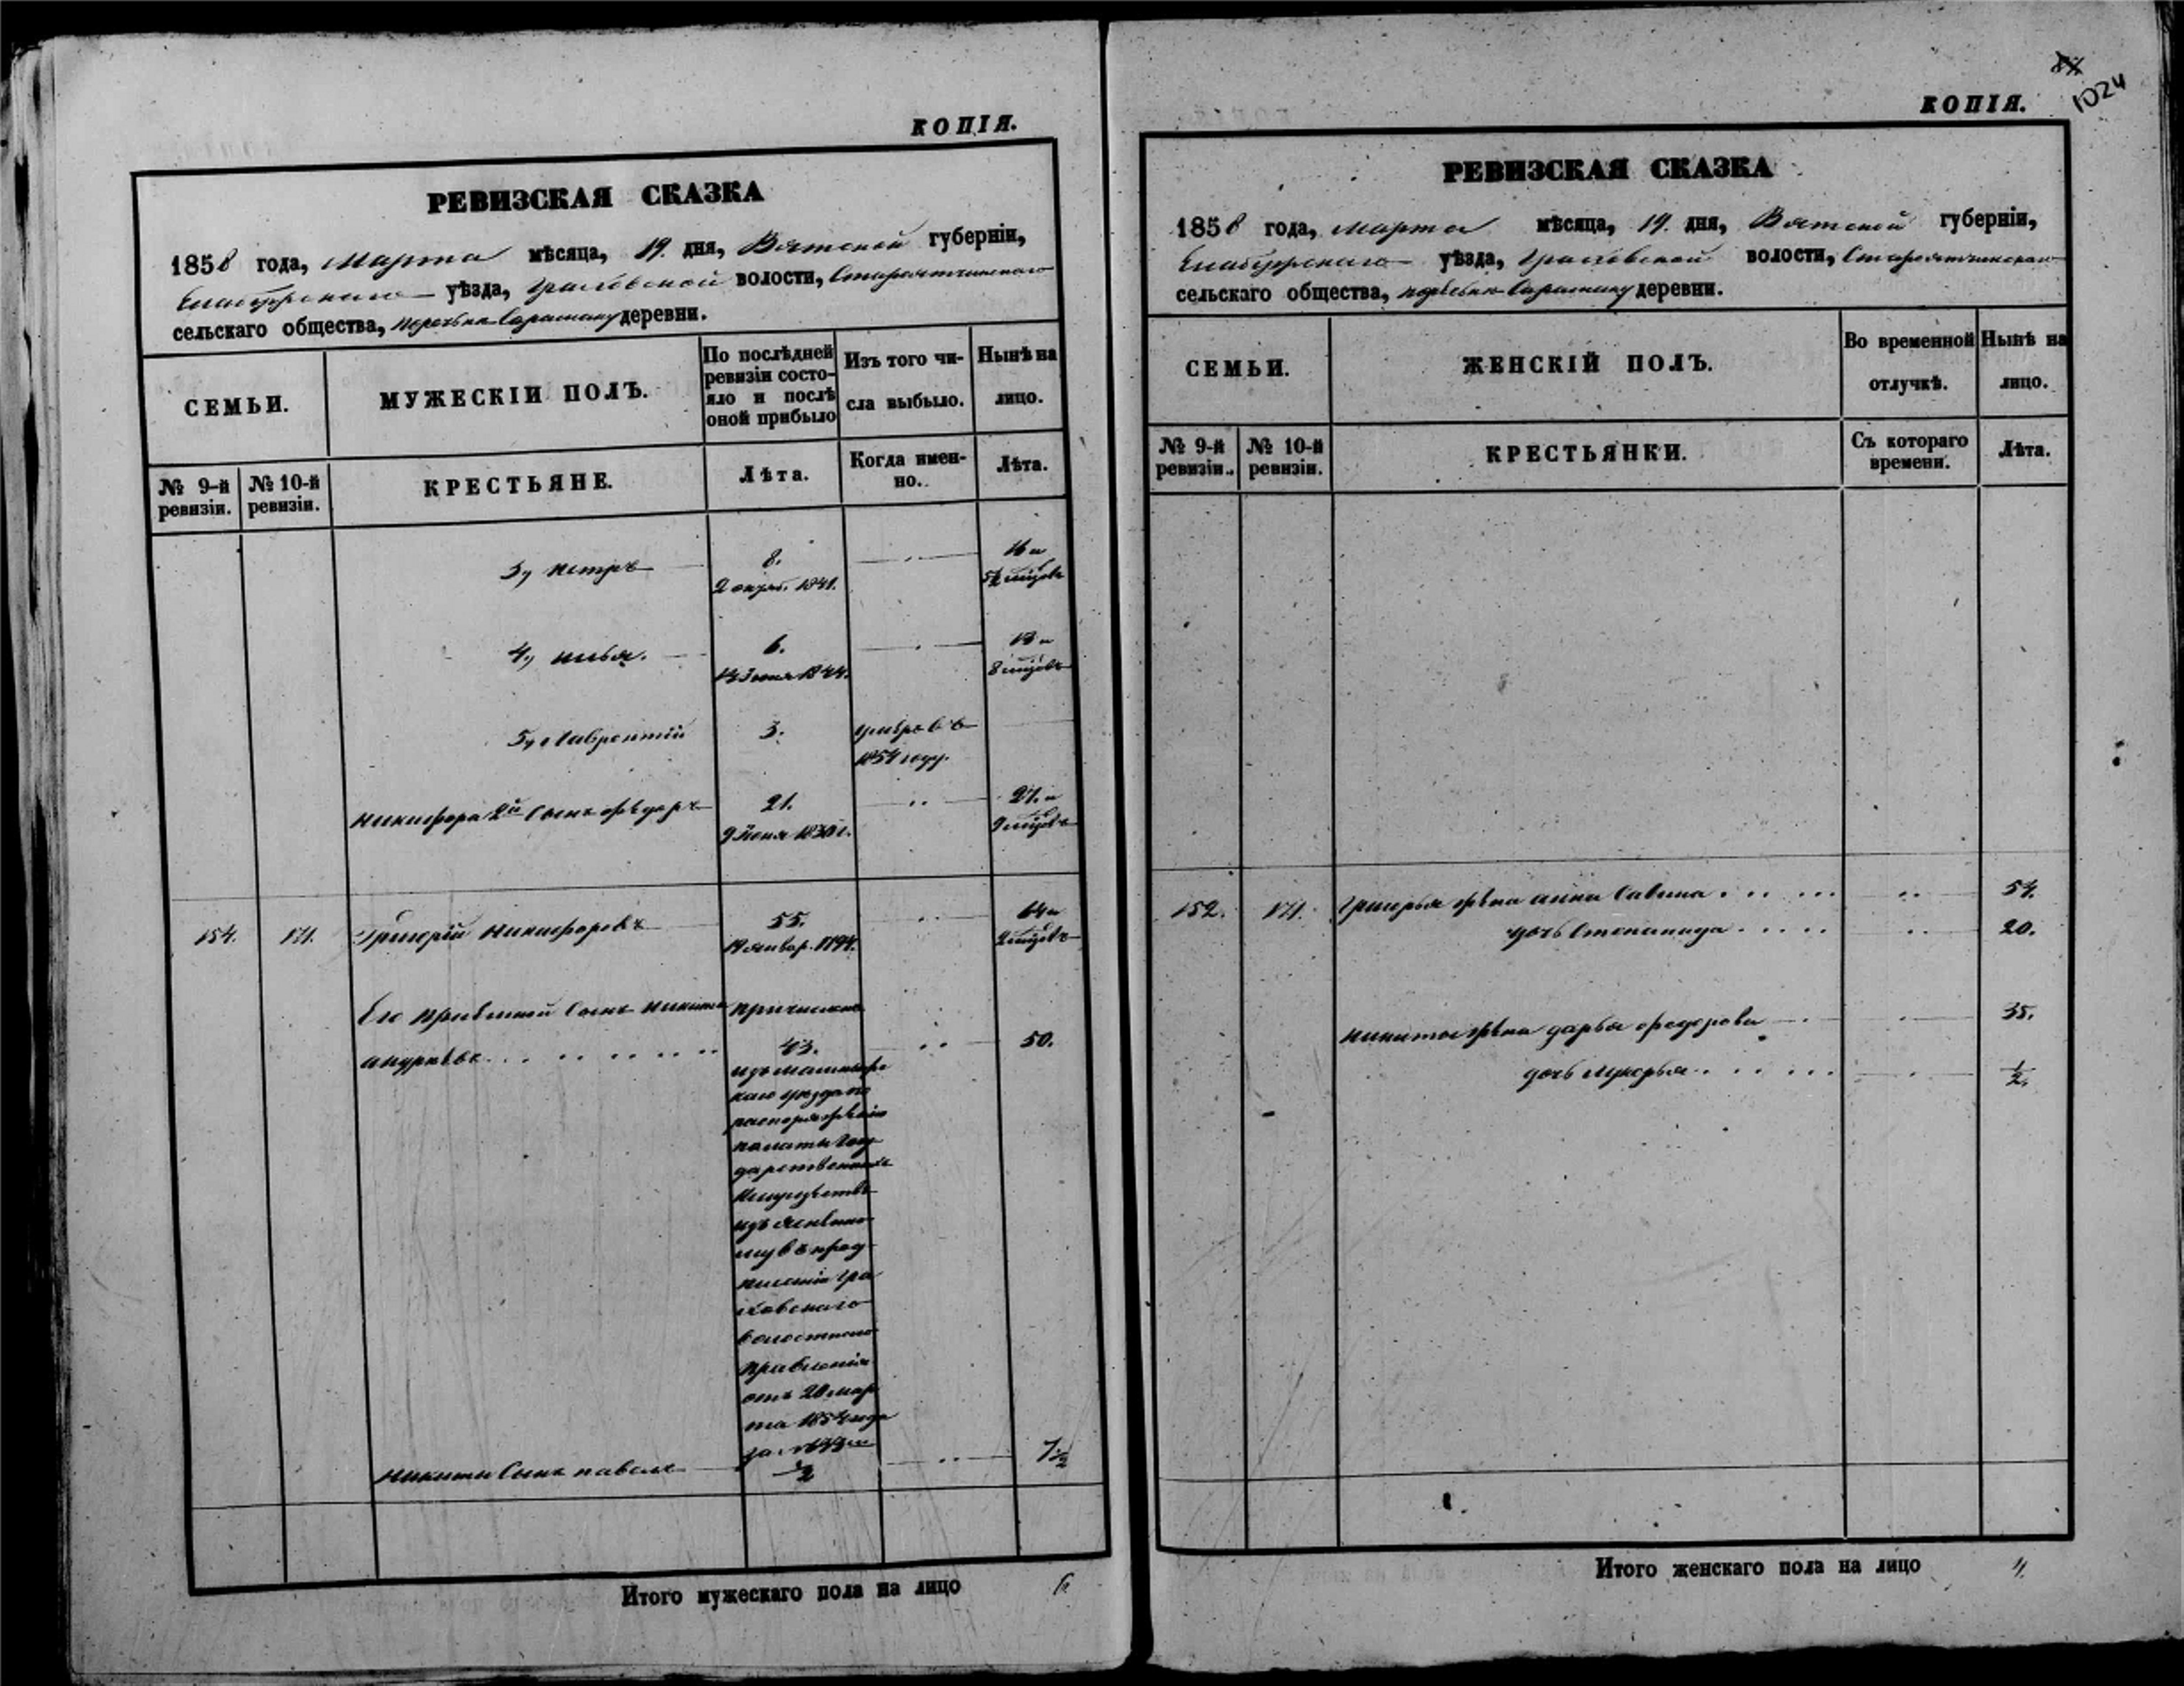 КОПІЯ.
РЕВИЗСКАЯ СКАЗКА
1858 года, Марта мѣсяца, 19. дня, Вятской губерніи,
Елабужскаго уѣзда, Граховской волости,
сельскаго общества, деревни.
СЕМЬИ.
МУЖЕСКІЙ ПОЛЪ.
По послѣдней
ревизіи состо-
яло и послѣ
оной прибыло
Изъ того чи-
сла выбыло.
Нынѣ на
лицо.
№ 9-й
ревизіи.
№ 10-й
ревизіи.
КРЕСТЬЯНЕ.
Лѣта.
Когда имен-
но.
Лѣта.
3, Петръ 8. 16 и
2 октяб. 1841.
4, Илья. 6. 13 и
Іюня 1844. 8 мцовъ
5, Лаврентій 3. умеръ въ
1854 году.
Никифора 2й Сынъ Федоръ 21. 27. и
9 Іюня 1830 г. 9 мцовъ
154. 171. Григорій Никифоровъ 55. 64 и
19 январ. 1794. 2 мцовъ
Его приемный Сынъ Никита причисленъ
Андреевъ 43. 50.
изъ
каго уѣзда по
распоряженію
палаты Госу
дарственныхъ
Имуществъ
изъ
му въ пред
писаніи Гра
ховскаго
волостного
Правленія
отъ 20 мар
та 1854 года
за №
Никиты Сынъ Павелъ ½ 7½
Итого мужескаго пола на лицо 6
1024
КОПІЯ.
РЕВИЗСКАЯ СКАЗКА
1858 года, марта мѣсяца, 19. дня, Вятской губерніи,
Елабужскаго уѣзда, Граховской волости,
сельскаго общества, деревни.
СЕМЬИ.
ЖЕНСКІЙ ПОЛЪ.
Во временной
отлучкѣ.
Нынѣ на
лицо.
№ 9-й
ревизіи.
№ 10-й
ревизіи.
КРЕСТЬЯНКИ.
Съ котораго
времени.
Лѣта.
152. 171. Григорья жена Анна Савина 54.
дочь Степанида 20.
Никиты жена Дарья Федорова 35.
дочь Лукерья ½.
Итого женскаго пола на лицо 4.